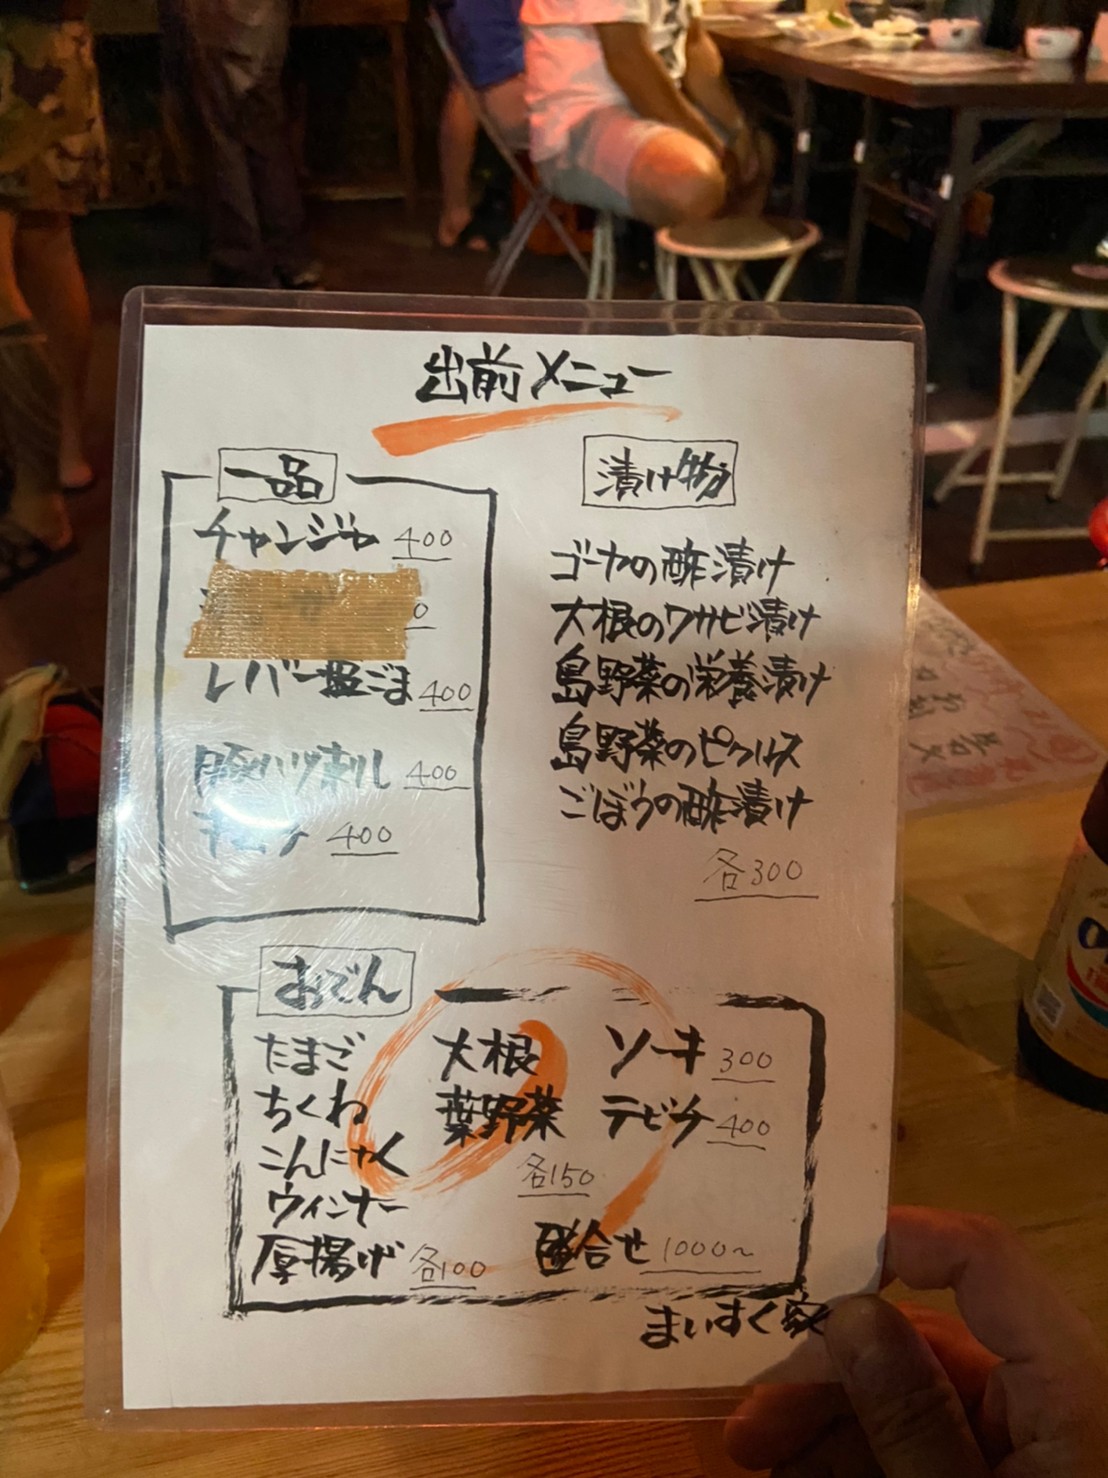 出前メニュー
一品
チャンジャ 400
レバー揚ごま 400
豚ハツ刺し 400
キムチ 400
漬け物
ゴーヤの酢漬け
大根のワサビ漬け
島野菜の栄養漬け
島野菜のピクルス
ごぼうの酢漬け
各300
おでん
たまご
ちくわ
こんにゃく
ウィンナー
厚揚げ 各100
大根
葉野菜
各150
ソーキ 300
テビチ 400
盛合せ 1000~
まいすく家